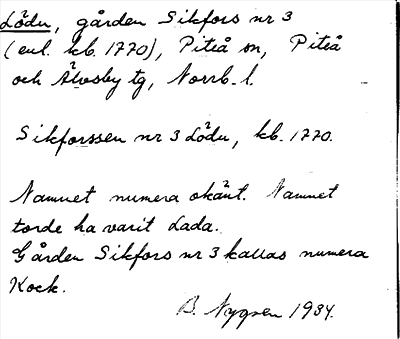 Lödu, gården Sikfors nr 3
(enl. kb. 1770), Piteå sn, Piteå
och Älvsby tg, Norrb. l.
Sikforssen nr 3 Lödu, kb. 1770.
Namnet numera okänt. Namnet
torde ha varit Lada.
Gården Sikfors nr 3 kallas numera
Kock.
B. Nygren 1934.